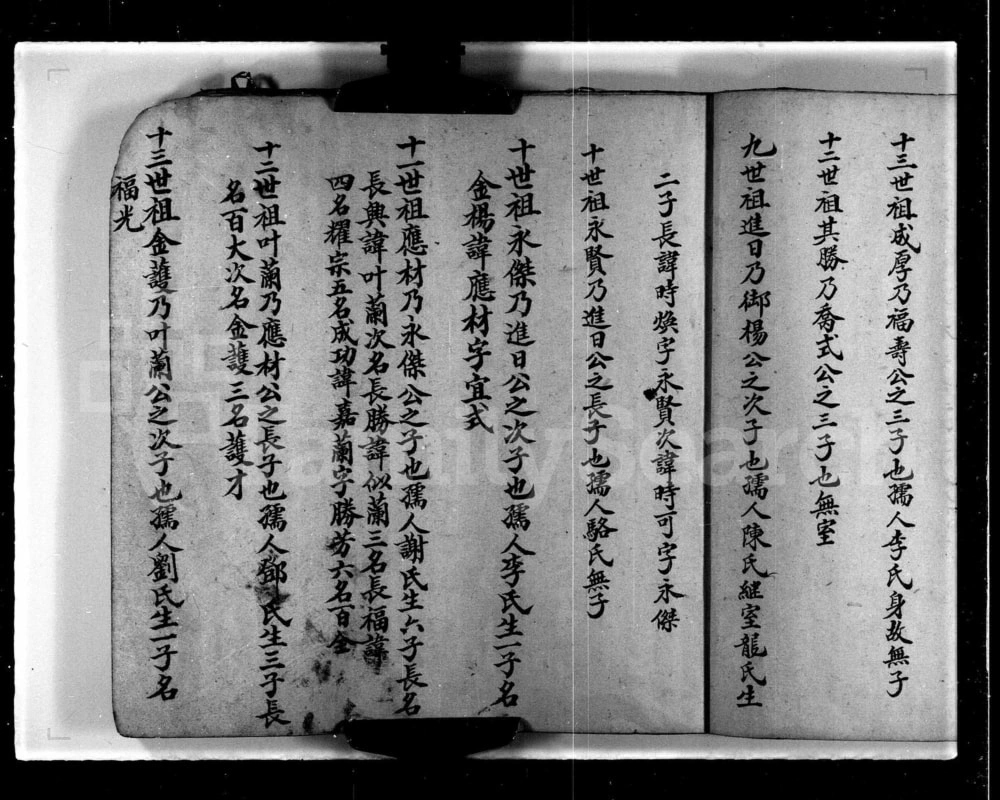 十三世祖成厚乃福壽公之三子也孺人李氏身故無子
十二世祖其勝乃喬式公之三子也無室
九世祖進日乃御楊公之次子也孺人陳氏継室龍氏生
二子長諱時煥字永賢次諱時可字永傑
十世祖永賢乃進日公之長子也孺人駱氏無子
十世祖永傑乃進日公之次子也孺人李氏生一子名
金楊諱應材字宜式
十一世祖應材乃永傑公之子也孺人謝氏生六子長名
長興諱叶蘭次名長勝諱似蘭三名長福諱
四名耀宗五名成功諱嘉蘭字勝芳六名百全
十二世祖叶蘭乃應材公之長子也孺人鄧氏生三子長
名百大次名金護三名護才
十三世祖金護乃叶蘭公之次子也孺人劉氏生一子名
福光
FamilySearch